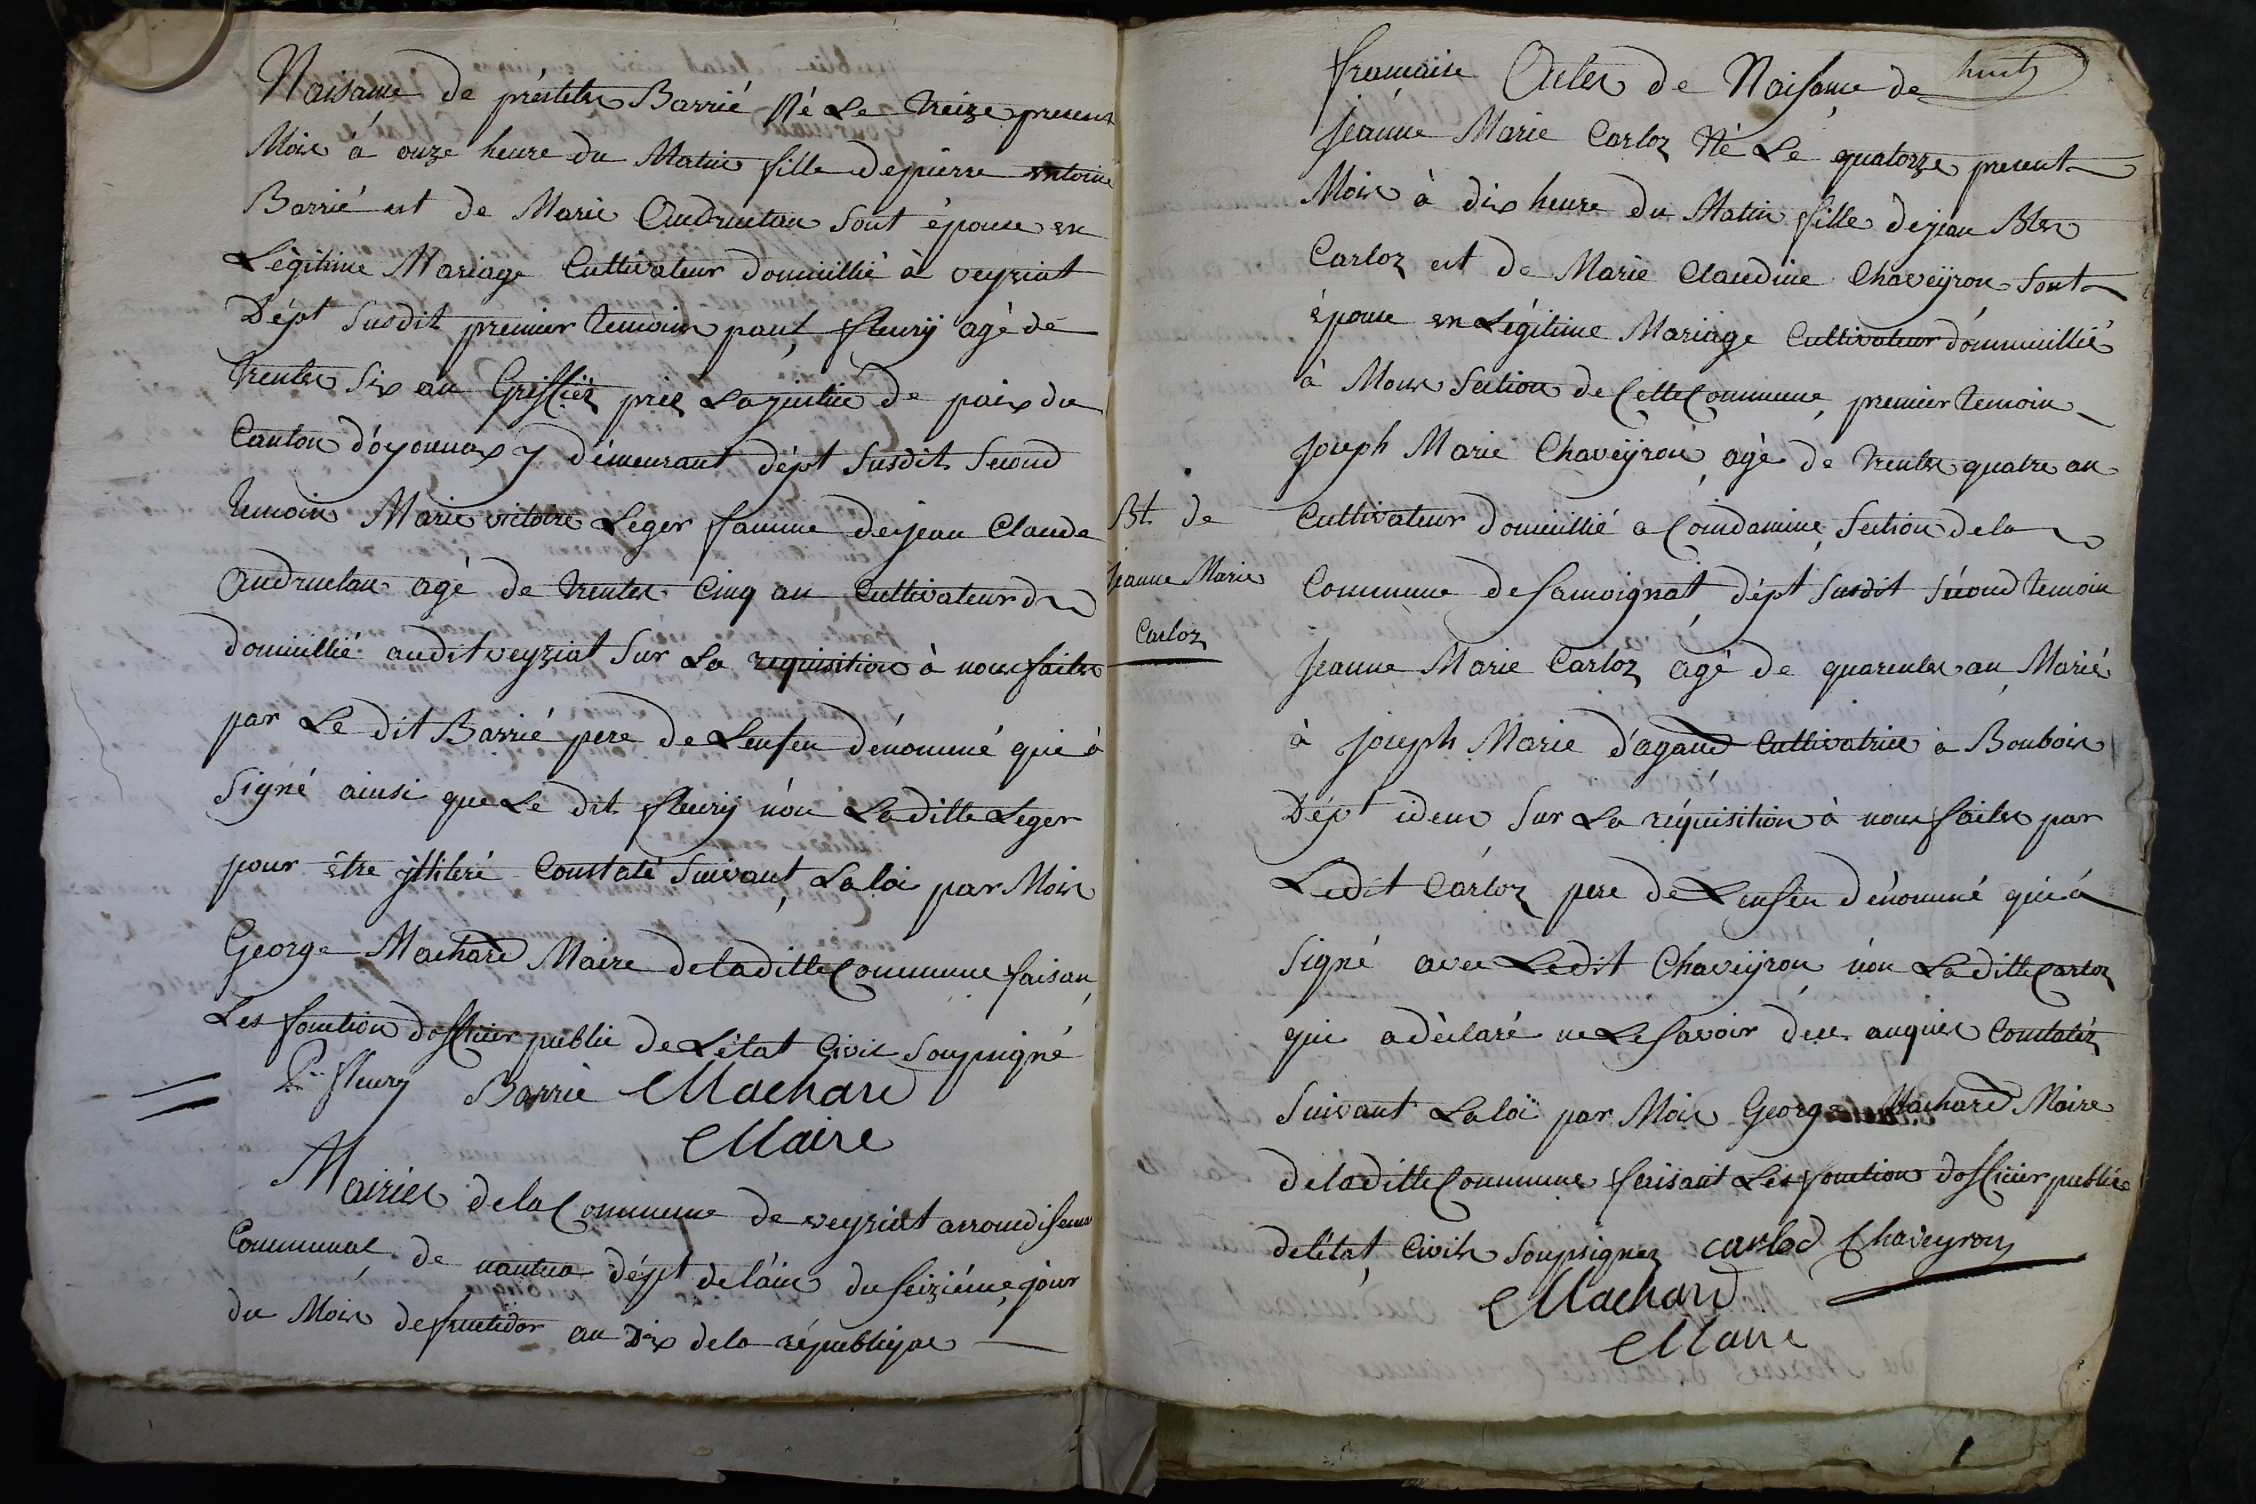 Naisance de Barrié Né Le treize present
Mois à onze heure du Matin fille depierre entoine
Barrié est de Marie Andruetan sont épouse en
Légitime Mariage Cultivateur domicillié à veyziat
Dépt susdit premier temoins paul fleurÿ agé de
trentes Six an Greffier prés La justice de paix du
Canton d'oyonnax y démeurant dépt susdit Second
temoin Marie victoire Leger famme dejean Claude
Andruetan agé de trentes Cinq an Cultivateur
domicillié audit veyziat Sur La requisition à nous faites
par Le dit Barrié pere de Lenfen dénommé qui à
Signé ainsi que Le dit fleurÿ nón Laditte Leger
pour être Constaté Suivant La loi par Mois
George Machard Maire deladitte Commune faisan
Les fonction dofficier public de Létat Civil Soupsigné
fleury Barrié Machard
Maire
Mairies dela Commune de veyziat arrondisemen
Communal de nantua dépt de láin du seiziéme jour
du Mois defructidor an Dix dela républiqúe
huit
française Actes de Naisance de
Jeanne Marie Carloz Né Le quatorze present
Mois à dix heure du Matin fille dejean Btes
Carloz est de Marie Claudine Chaveÿron Sont
épouse en Légitime Mariage Cultivateur domicillié
à Mons Section de Cette Commune, premier temoin
Joseph Marie Chaveÿron agé de trentes quatre an
Bt. de
Jeanne Marie
Carloz
Cultivateur domicillié a Condamine Section dela
Commune de Samoignat dépt susdit Sécond temoin
Jeanne Marie Carloz agé de quarentes an Marié
à Joseph Marie d'agand Cultivatrice à Boubois
Dépt idem Sur La réquisition à nous faites par
Ledit Carloz pere de Lenfen dénommé qui á
Signé avec Ledit Chaveÿron nón La ditte Carloz
qui a déclaré ne Le Savoir de ce anquis Constatéz
Suivant La loi par Mois George Machard Maire
deladitte Commune faisant Les fonction dofficier publics
delétat Civils Soupsignez carlod Chaveyron
Machard
Maire